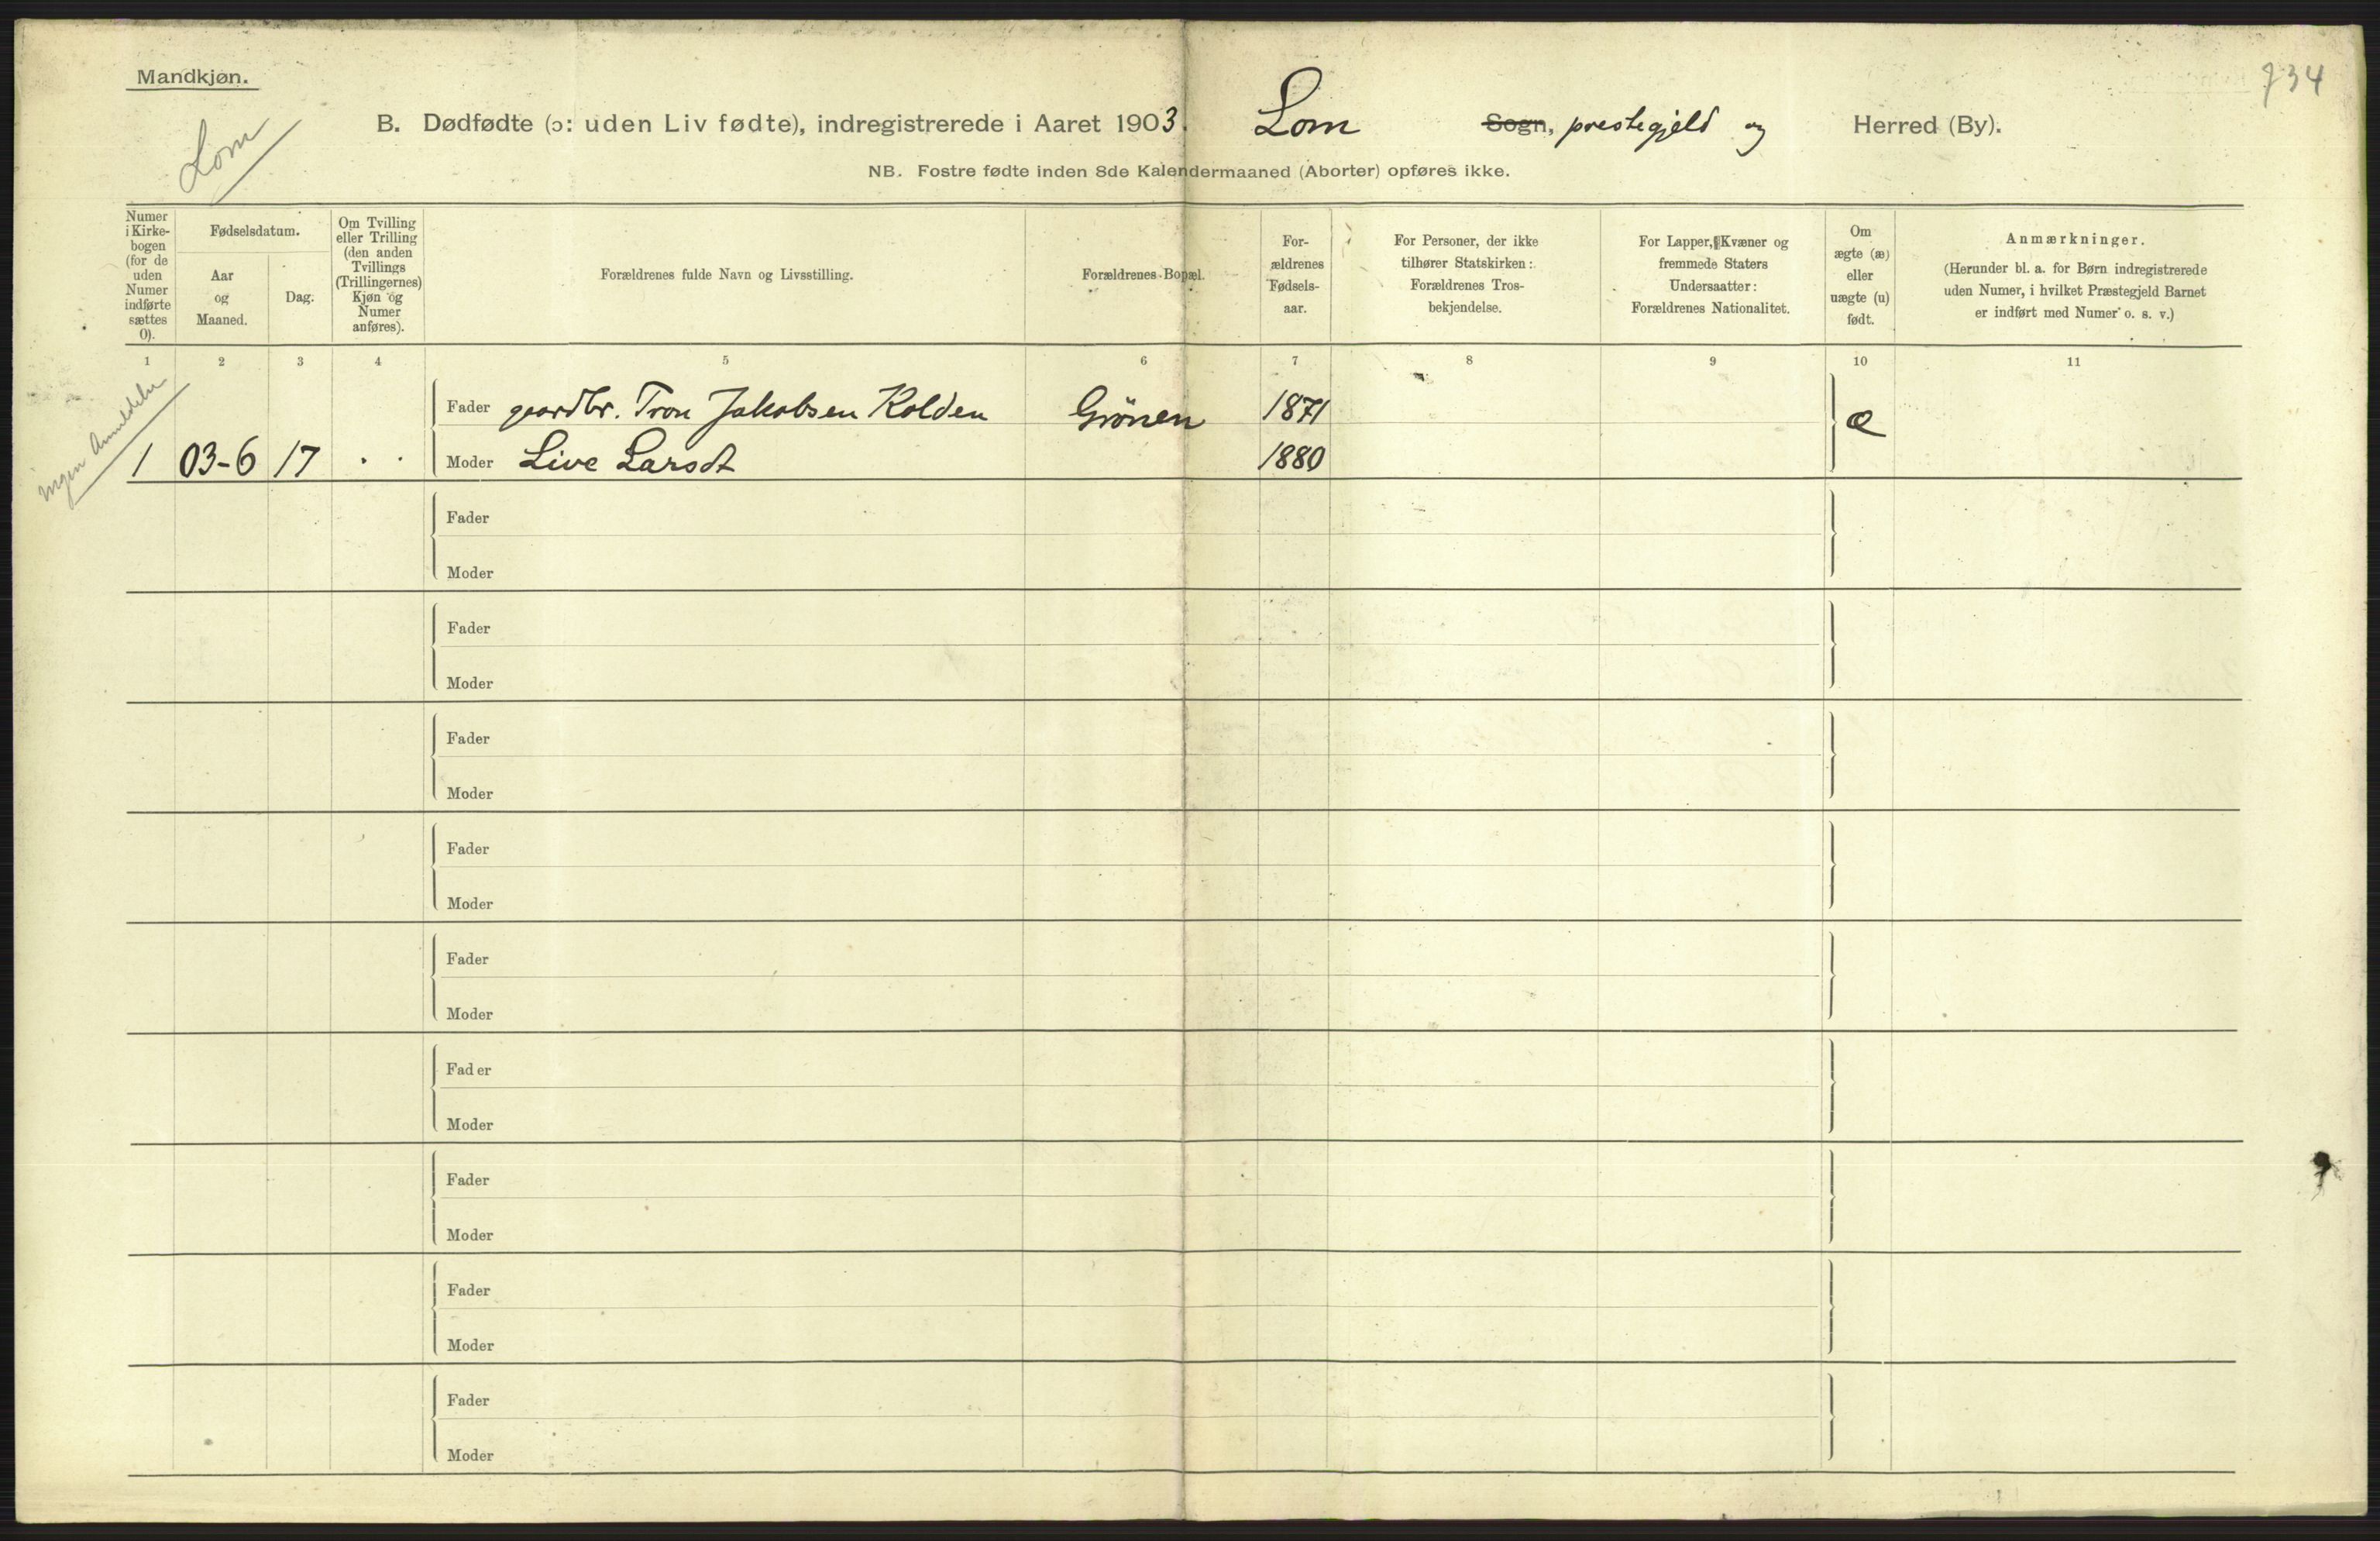 Mandkjøn.
734
Lom
B. Dødfødte (ɔ: uden Liv fødte), indregistrerede i Aaret 1903. Lom Sogn, prestegjeld og Herred (By).
NB. Fostre fødte inden 8de Kalendermaaned (Aborter) opføres ikke.
Numer
i Kirke-
bogen
(for de
uden
Numer
indførte
sættes
0).
Fødselsdatum.
Aar
og
Maaned.
Dag.
Om Tvilling
eller Trilling
(den anden
Tvillings
(Trillingernes)
Kjøn og
Numer
anføres).
Forældrenes fulde Navn og Livsstilling.
Forældrenes Bopæl.
For-
ældrenes
Fødsels-
aar.
For Personer, der ikke
tilhører Statskirken:
Forældrenes Tros-
bekjendelse.
For Lapper, Kvæner og
fremmede Staters
Undersaatter:
Forældrenes Nationalitet.
Om
ægte (æ)
eller
uægte (u)
født.
Anmærkninger.
(Herunder bl. a. for Børn indregistrerede
uden Numer, i hvilket Præstegjeld Barnet
er indført med Numer o. s. v.)
1 2 3 4 5 6 7 8 9 10 11
ingen Anmeldelse
Fader gaardbr. Tron Jakobsen Kolden Grönen 1871 æ
1 03-6 17 . . Moder Live Larsdt 1880
Fader
Moder
Fader
Moder
Fader
Moder
Fader
Moder
Fader
Moder
Fader
Moder
Fader
Moder
Fader
Moder
Fader
Moder